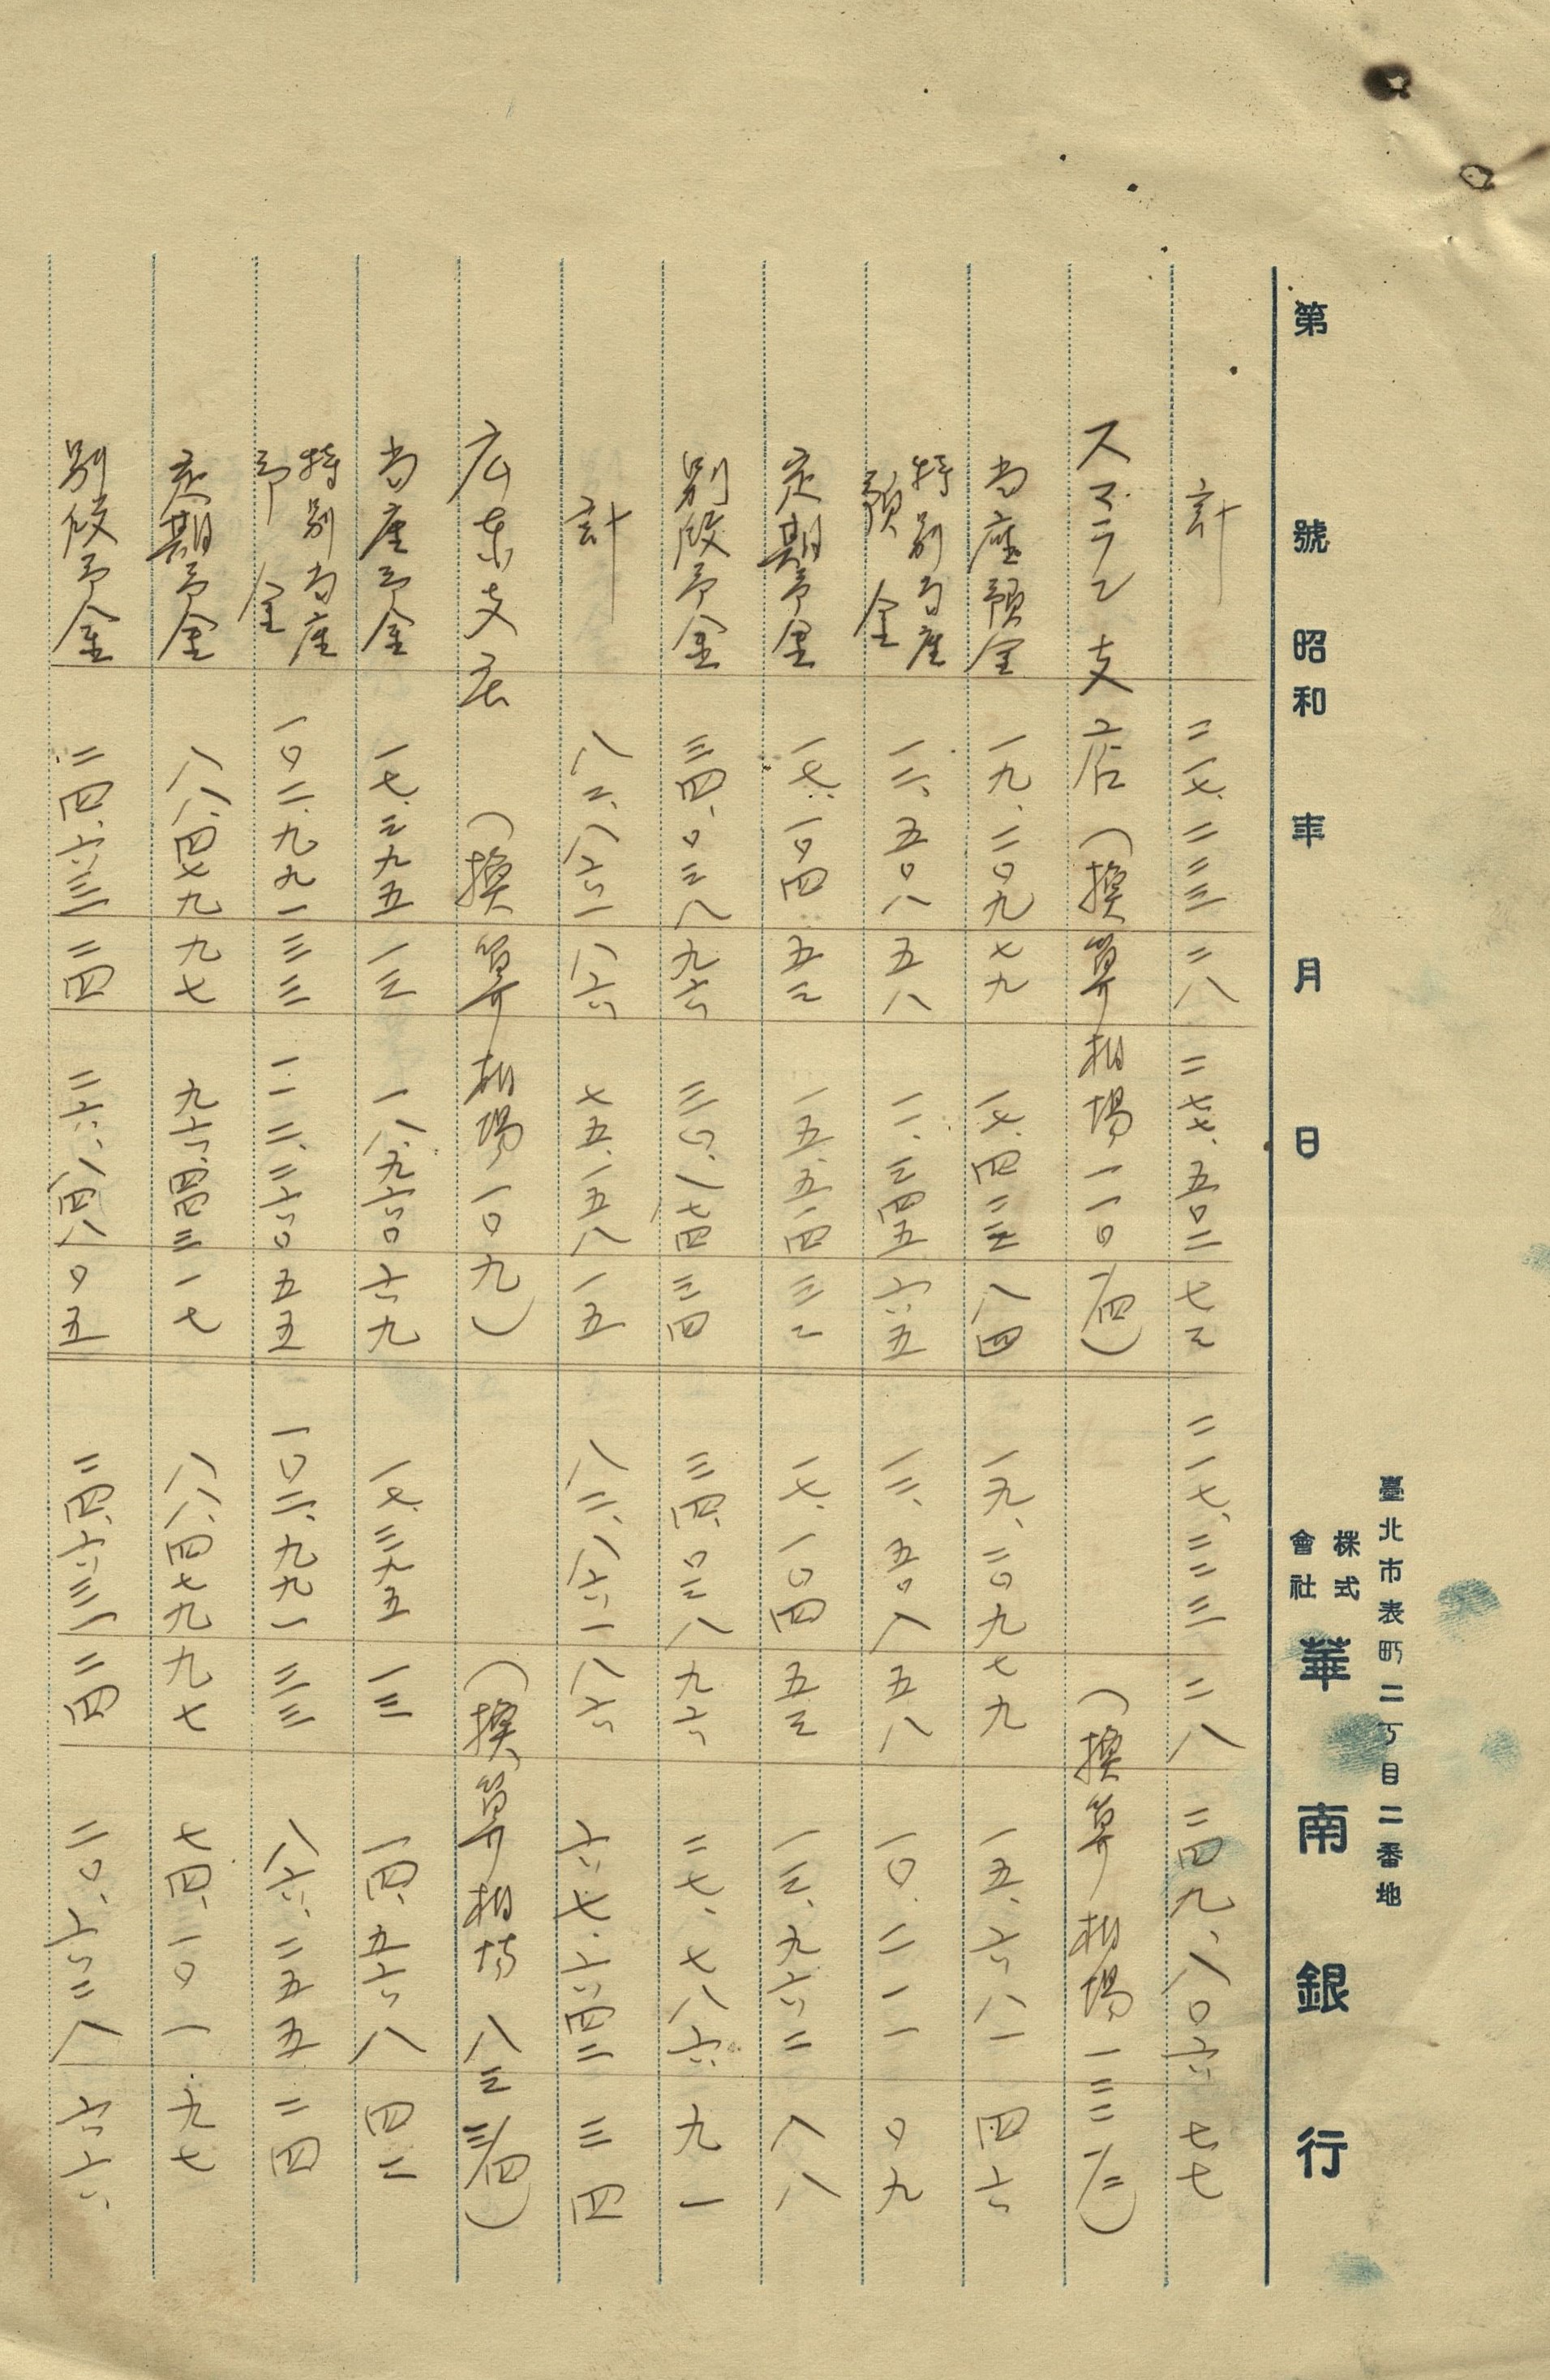 臺北市表町二丁目二番地
第 號 昭和 年 月 日 株式會社 華南銀行
計 二一七、二二三 二八 二七七、五〇二 七三 二一七、二二三 二八 三四九、八〇六 七七
スマラン支店 (換算相場一一〇 一/四) (換算相場一二二 一/二)
当座預金 一九、二〇九 七九 一七、四二三 八四 一九、二〇九 七九 一五、六八一 四六
特別当座預金 一二、五〇八 五八 一一、三四五 六五 一二、五〇八 五八 一〇、二一一 〇九
定期予金 一七、一〇四 五三 一五、五一四 三二 一七、一〇四 五三 一三、九六二 八八
別段予金 三四、〇三八 九六 三〇、八七四 三四 三四、〇三八 九六 二七、七八六 九一
計 八二、八六一 八六 七五、一五八 一五 八二、八六一 八六 六七、六四二 三四
広東支店 (換算相場一〇九) (換算相場八三 三/四)
当座予金 一七、三九五 一三 一八、九六〇 六九 一七、三九五 一三 一四、五六八 四二
特別当座予金 一〇二、九九一 三三 一一二、二六〇 五五 一〇二、九九一 三三 八六、二五五 二四
定期予金 八八、四七九 九七 九六、四四三 一七 八八、四七九 九七 七四、一〇一 九七
別段予金 二四、六三一 二四 二六、八四八 〇五 二四、六三一 二四 二〇、六二八 六六